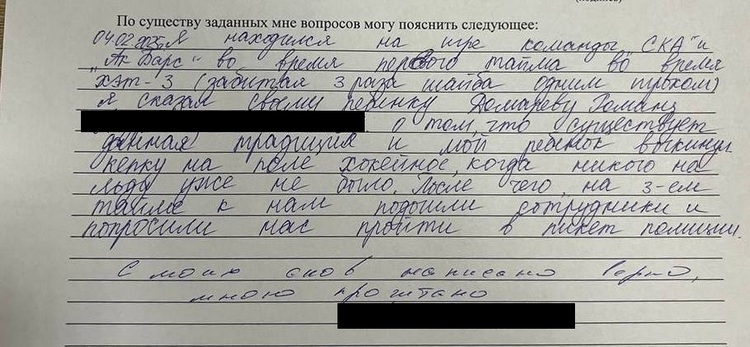 По существу заданных мне вопросов могу пояснить следующее:
04.02.2025 Я находился на игре команды „СКА" и
„Ак Барс" во время первого тайма во время
хэт-3 (забитая 3 раза шайба одним игроком)
Я сказал своему ребенку Домареву Роману
о том, что существует
данная традиция и мой ребенок выкинул
кепку на поле хоккейное, когда никого на
льду уже не было. После чего, на 3-ем
тайме к нам подошли сотрудники и
попросили нас пройти в пикет полиции.
С моих слов написано верно,
мною прочитано